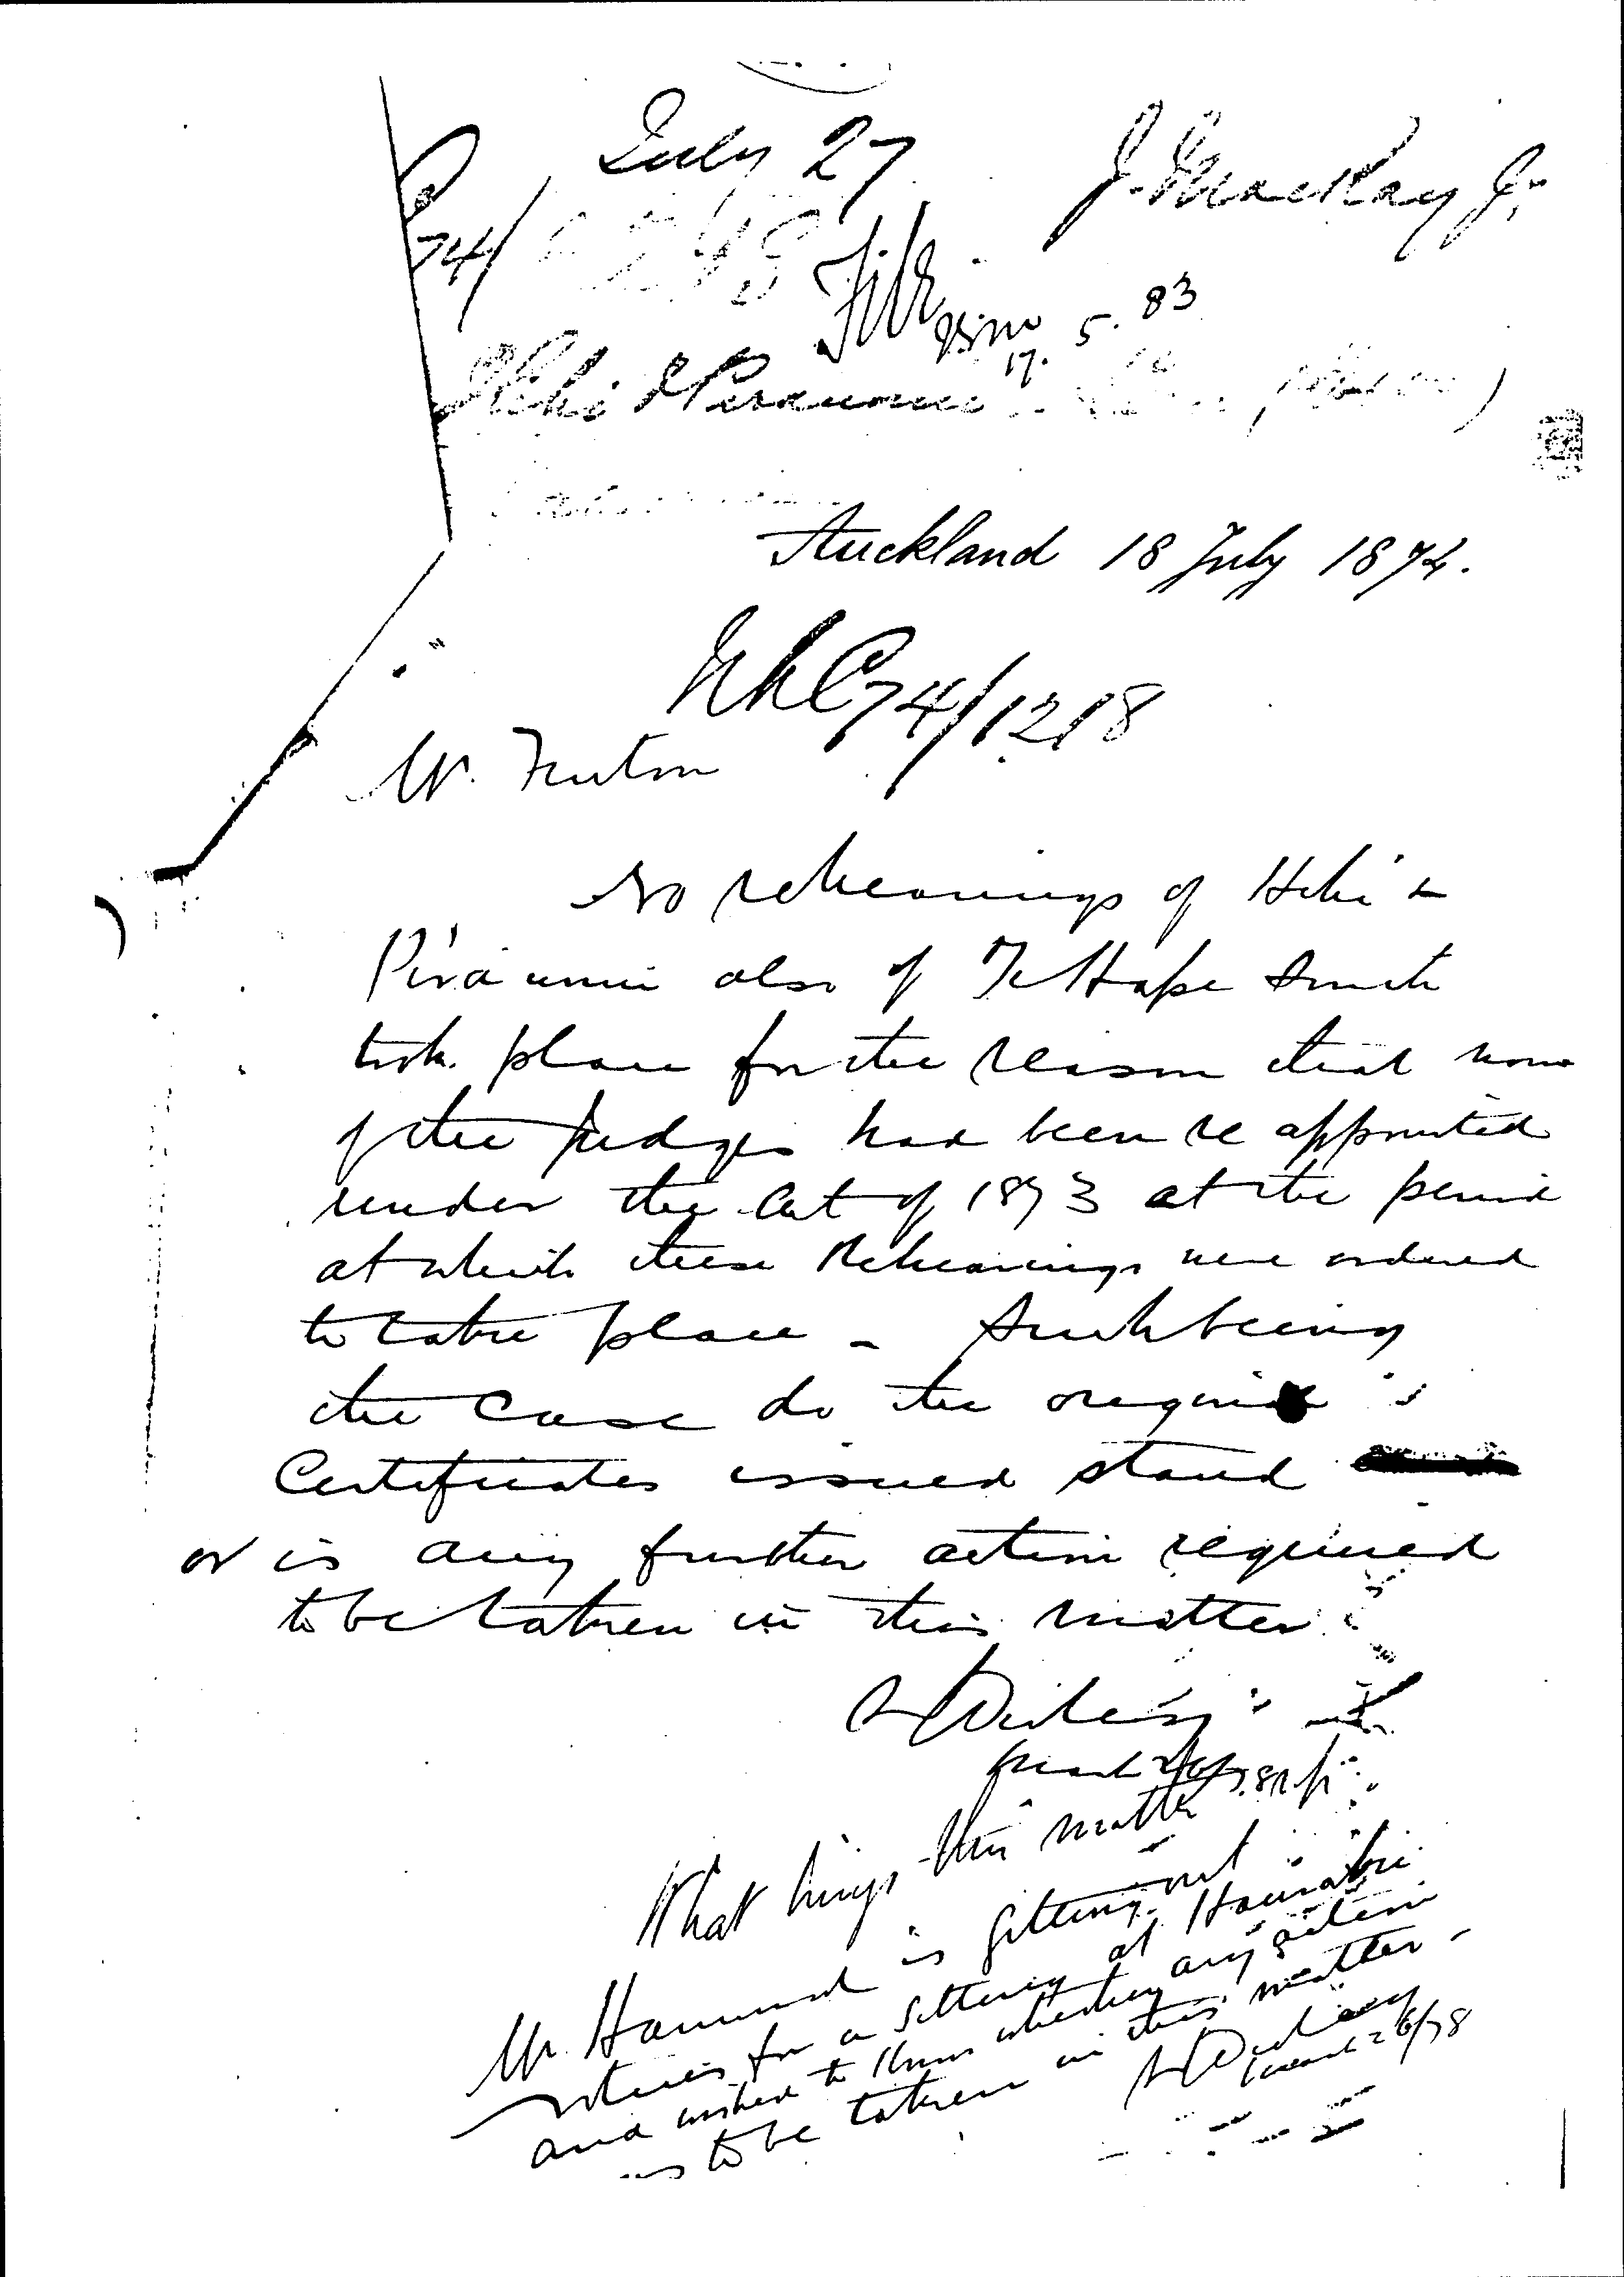 July 27
J. Mackay Jr
74/
File
17. 5. 83
Hihi & Piraunui
Auckland 18 July 1874.
NLC 74/1218
Mr. Fenton
No rehearings of Hihi &
Piraunui also of Te Hape South
took place for the reason that none
of the Judges had been re appointed
under the Act of 1873 at the period
at which these Rehearings were ordered
to take place – Such being
the case do the original
Certificates issued stand
or is any further action required
to be taken in this matter
March 26/78
What brings this matter up
Mr. Hammond is getting out
notices for a sitting at Hauraki
and wished to know whether any action
is to be taken in this matter –
March 26/78